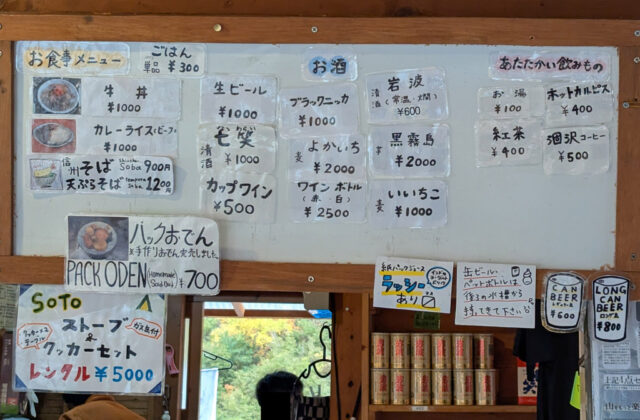 お食事メニュー
ごはん
単品 ¥300
牛丼
¥1000
カレーライス(ビーフ)
¥1000
信州そば Soba 900円
天ぷらそば 1200円
パックおでん
手作りおでん完売しました
PACK ODEN (Homemade Sold Out) ¥700
お酒
生ビール
¥1000
七笑
清酒 ¥1000
カップワイン
¥500
ブラックニッカ
¥1000
よかいち
麦 ¥2000
ワインボトル
(赤・白)
¥2500
岩波
清酒 (常温・燗)
¥600
黒霧島
芋 ¥2000
いいちこ
麦 ¥1000
あたたかい飲みもの
お湯
¥100
ホットカルピス
¥400
紅茶
¥400
涸沢コーヒー
¥500
SOTO
ストーブ
&
クッカーセット
レンタル ¥5000
ガス缶付
紙パックジュース
ラッシー
あり
缶ビール・
ペットボトルは
後ろの水槽から
持ってきて下さい
CAN
BEER
¥600
LONG CAN
BEER
ロング缶
¥800